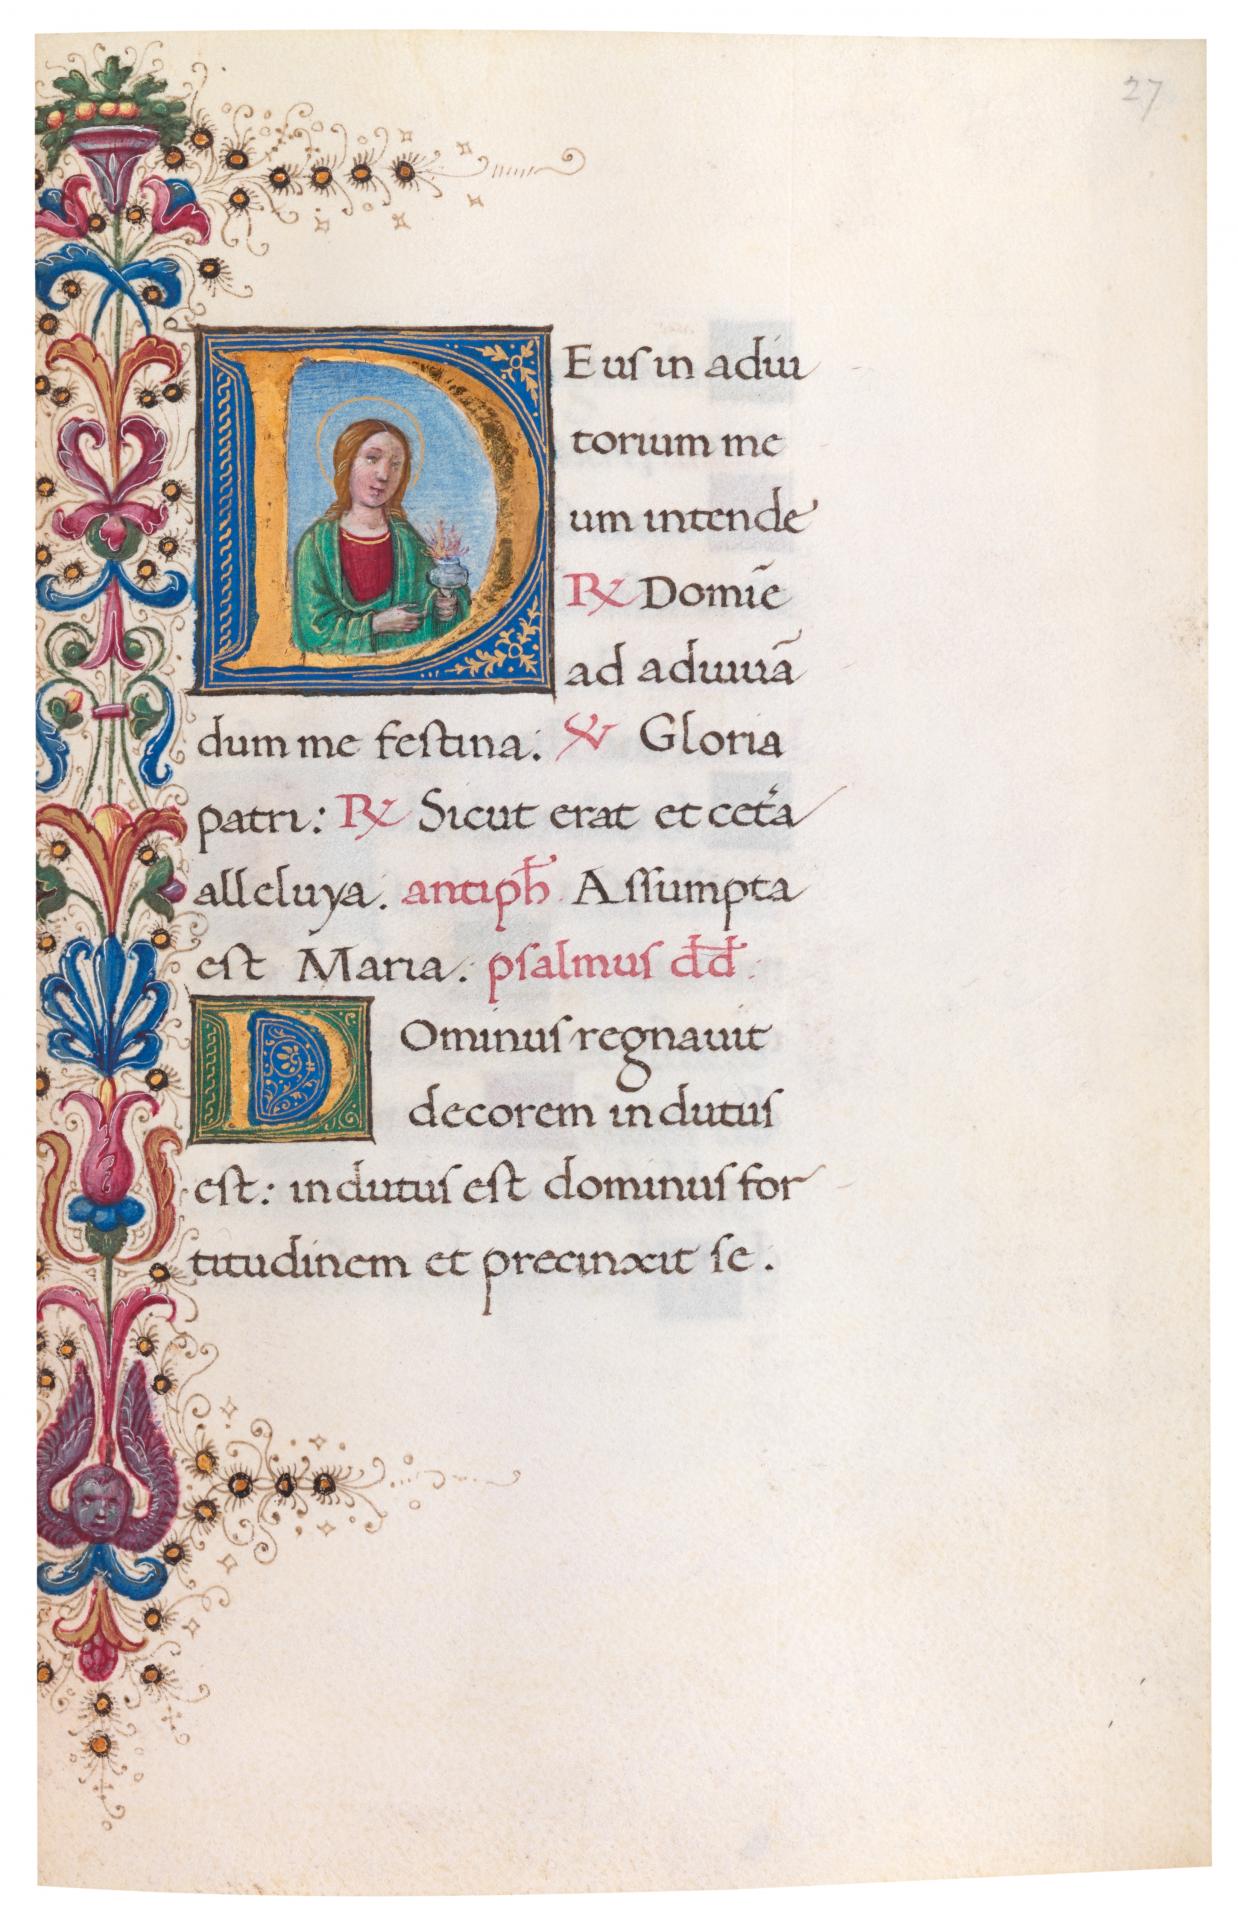 27
DEus in adiu
torium me
um intende
℞ Domiē
ad adiuuā
dum me festina: ℣ Gloria
patri: ℞ Sicut erat et cet̾a
alleluya. antiph̄ Assumpta
est Maria. psalmus dd̄.
DOminus regnauit
decorem indutus
est: indutus est dominus for
titudinem et precinxit se.